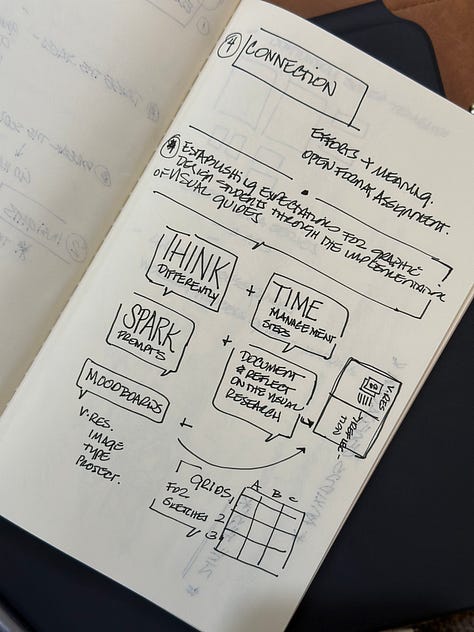 4 CONNECTION
EFFORTS + MEANING.
OPEN FORMAT ASSIGNMENT.
ESTABLISHING EXPECTATIONS FOR GRAPHIC
DESIGN STUDENTS THROUGH THE IMPLEMENTATION
OF VISUAL GUIDES
THINK
DIFFERENTLY
+
TIME
MANAGEMENT
STEPS
SPARK
PROMPTS
+
DOCUMENT
& REFLECT
ON THE VISUAL
RESEARCH
V.RES
MOODBOARDS
+
V.RES.
IMAGE
TYPE
PROJECT.
GRIDS,
FOR
SKETCHES
A B C
2
3